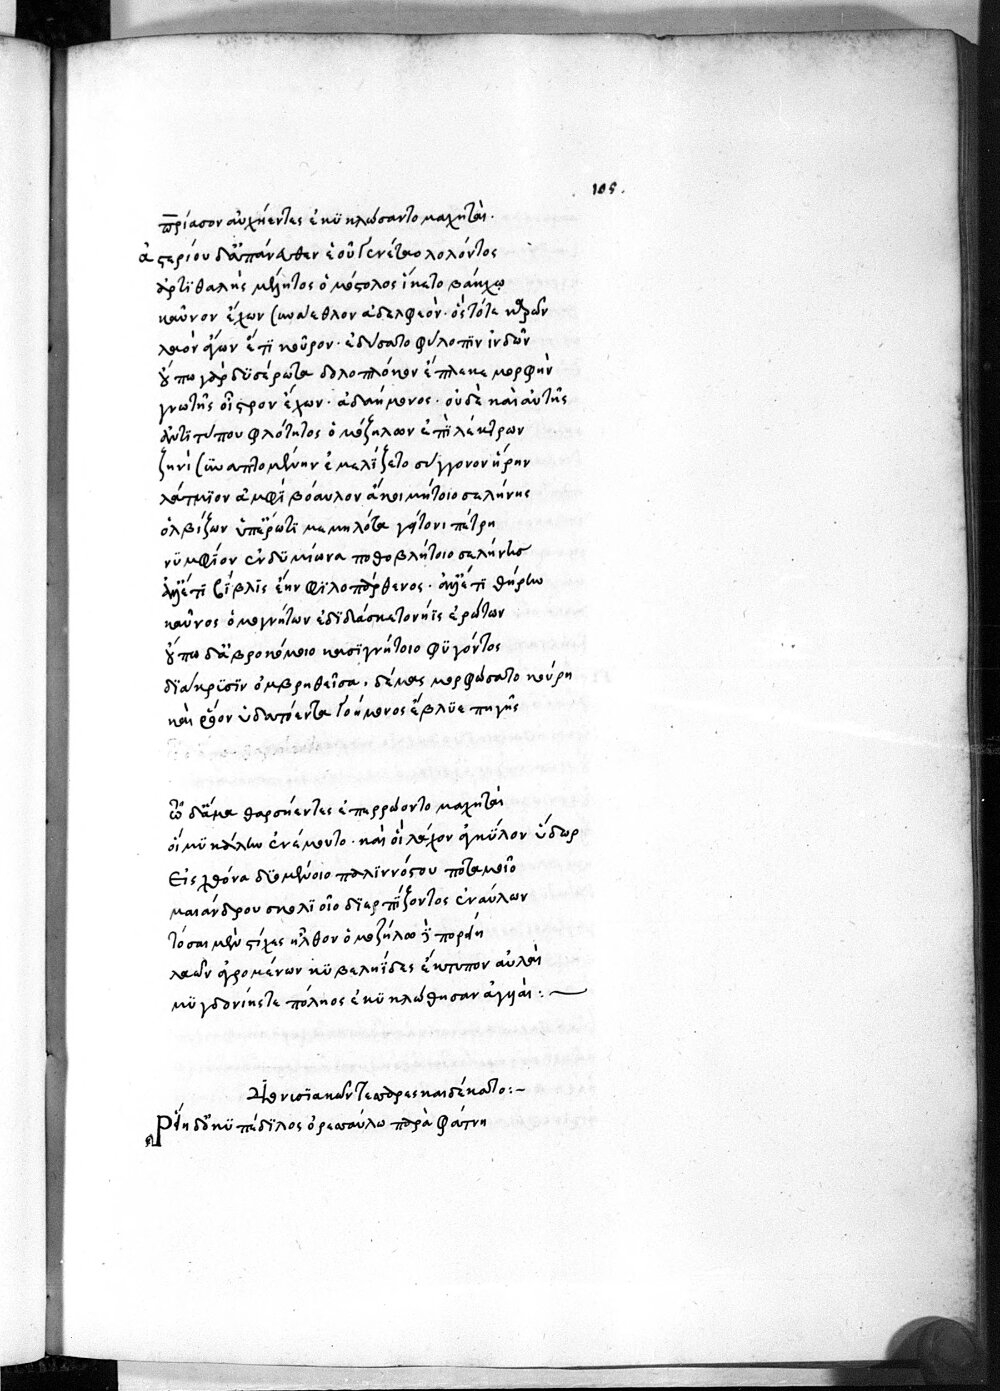 105.
πρίασον αὐχήεντες ἐκυκλώσαντο μαχηταί.
ἀστερίου δ' ἀπάνευθεν ἑοῦ γενέταο λοχόντος
ἀρτιθαλὴς μίλητος ὁμόστολος ἵκετο βάκχω
καῦνον ἔχων συνάεθλον ἀδελφεόν. ὃς τότε καρῶν
λαὸν ἄγων ἔτι κοῦρον. ἐδύσατο φύλοπιν ἰνδῶν
οὔπω γὰρ δυσέρωτα δολοπλόκον ἔπλεκε μορφὴν
γνωτῆς οἶστρον ἔχων. ἀδαήμονος. οὐδὲ καὶ αὐτῆς
ἀντιτύπου φιλότητος ὁμόζηλον ἐπὶ λέκτρων
ζηνὶ συναπτομένην ἐμελίζετο σύγγονον ἥρην
λάτμιον ἀμφὶ βόαυλον ἀκοιμήτοιο σελήνης
ὀλβίζων ὑπ' ἔρωτι μεμηλότα γείτονι πέτρη
νυμφίον ἐνδυμίωνα ποθοβλήτοιο σελήνης
ἀλλ' ἔτι βίβλις ἔην φιλοπάρθενος. ἀλλ' ἔτι θήρην
καῦνος ὁμογνήτων ἐδιδάσκετο νῆϊς ἐρώτων
οὔπω δ' ἁβροκόμοιο κασιγνήτοιο φυγόντος
δάκρυσιν ὀμβρηθεῖσα, δέμας μορφώσατο κούρη
καὶ ῥόον ὑδατόεντα γοήμονος ἔβλυε πηγῆς
τῷ δ' ἅμα θαρσήεντες ἐπερρώοντο μαχηταὶ
οἳ μυκάλην ἐνέμοντο. καὶ οἳ λάχον ἀγκύλον ὕδωρ
Εἰς χθόνα δυομένοιο παλιννόστου ποταμοῖο
μαιάνδρου σκολιοῖο διερπύζοντος ἐναύλων
τόσαι μὲν στίχες ἦλθον ὁμοζήλω πορείη
λαῶν ἀγρομένων κυβεληΐδες ἔκτυπον αὐλαὶ
μυγδονίης τε πόληος ἐκυκλώθησαν ἀγυιαί:
Διονυσιακῶν τεσσαρεσκαιδέκατον:-
Ρείη δ' ὠκυπέδιλος ὀρεσσαύλω παρὰ φάτνη